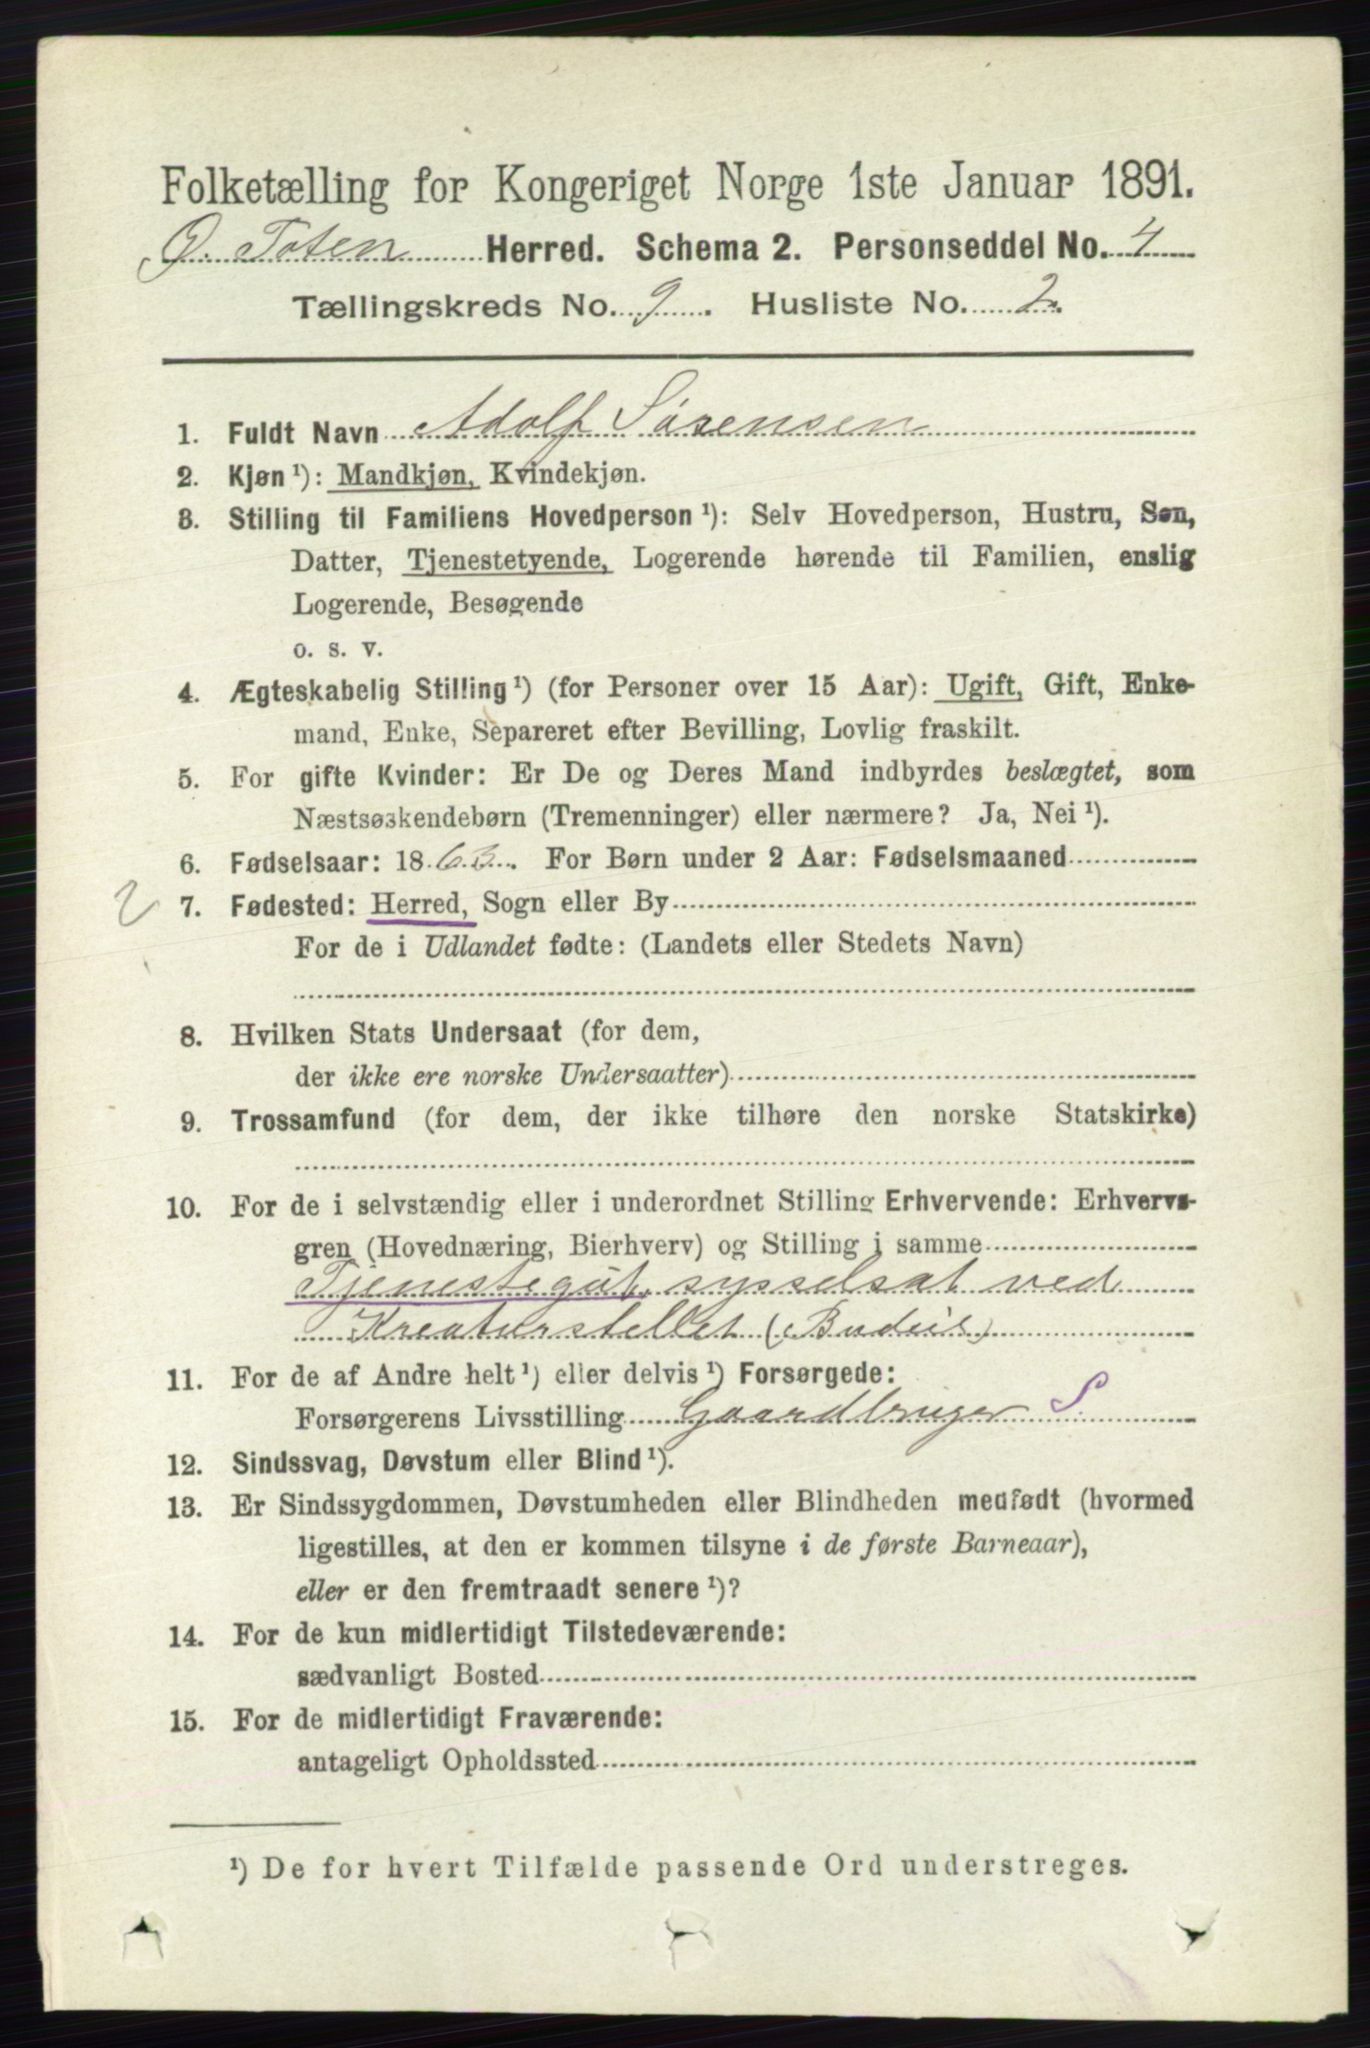 Folketælling for Kongeriget Norge 1ste Januar 1891.
Ø. Toten Herred. Schema 2. Personseddel No. 4
Tællingskreds No. 9. Husliste No. 2.
1. Fuldt Navn Adolf Sørensen
2. Kjøn ¹): Mandkjøn, Kvindekjøn.
3. Stilling til Familiens Hovedperson ¹): Selv Hovedperson, Hustru, Søn,
Datter, Tjenestetyende, Logerende hørende til Familien, enslig
Logerende, Besøgende
o. s. v.
4. Ægteskabelig Stilling ¹) (for Personer over 15 Aar): Ugift, Gift, Enke-
mand, Enke, Separeret efter Bevilling, Lovlig fraskilt.
5. For gifte Kvinder: Er De og Deres Mand indbyrdes beslægtet, som
Næstsøskendebørn (Tremenninger) eller nærmere? Ja, Nei ¹).
6. Fødselsaar: 1863. For Børn under 2 Aar: Fødselsmaaned
2 7. Fødested: Herred, Sogn eller By
For de i Udlandet fødte: (Landets eller Stedets Navn)
8. Hvilken Stats Undersaat (for dem,
der ikke ere norske Undersaatter)
9. Trossamfund (for dem, der ikke tilhøre den norske Statskirke)
10. For de i selvstændig eller i underordnet Stilling Erhvervende: Erhvervs-
gren (Hovednæring, Bierhverv) og Stilling i samme
Tjenestegut, sysselsat ved
Kreaturstellet
11. For de af Andre helt ¹) eller delvis ¹) Forsørgede:
Forsørgerens Livsstilling Gaardbruger S
12. Sindssvag, Døvstum eller Blind ¹).
13. Er Sindssygdommen, Døvstumheden eller Blindheden medfødt (hvormed
ligestilles, at den er kommen tilsyne i de første Barneaar),
eller er den fremtraadt senere ¹)?
14. For de kun midlertidigt Tilstedeværende:
sædvanligt Bosted
15. For de midlertidigt Fraværende:
antageligt Opholdssted
¹) De for hvert Tilfælde passende Ord understreges.